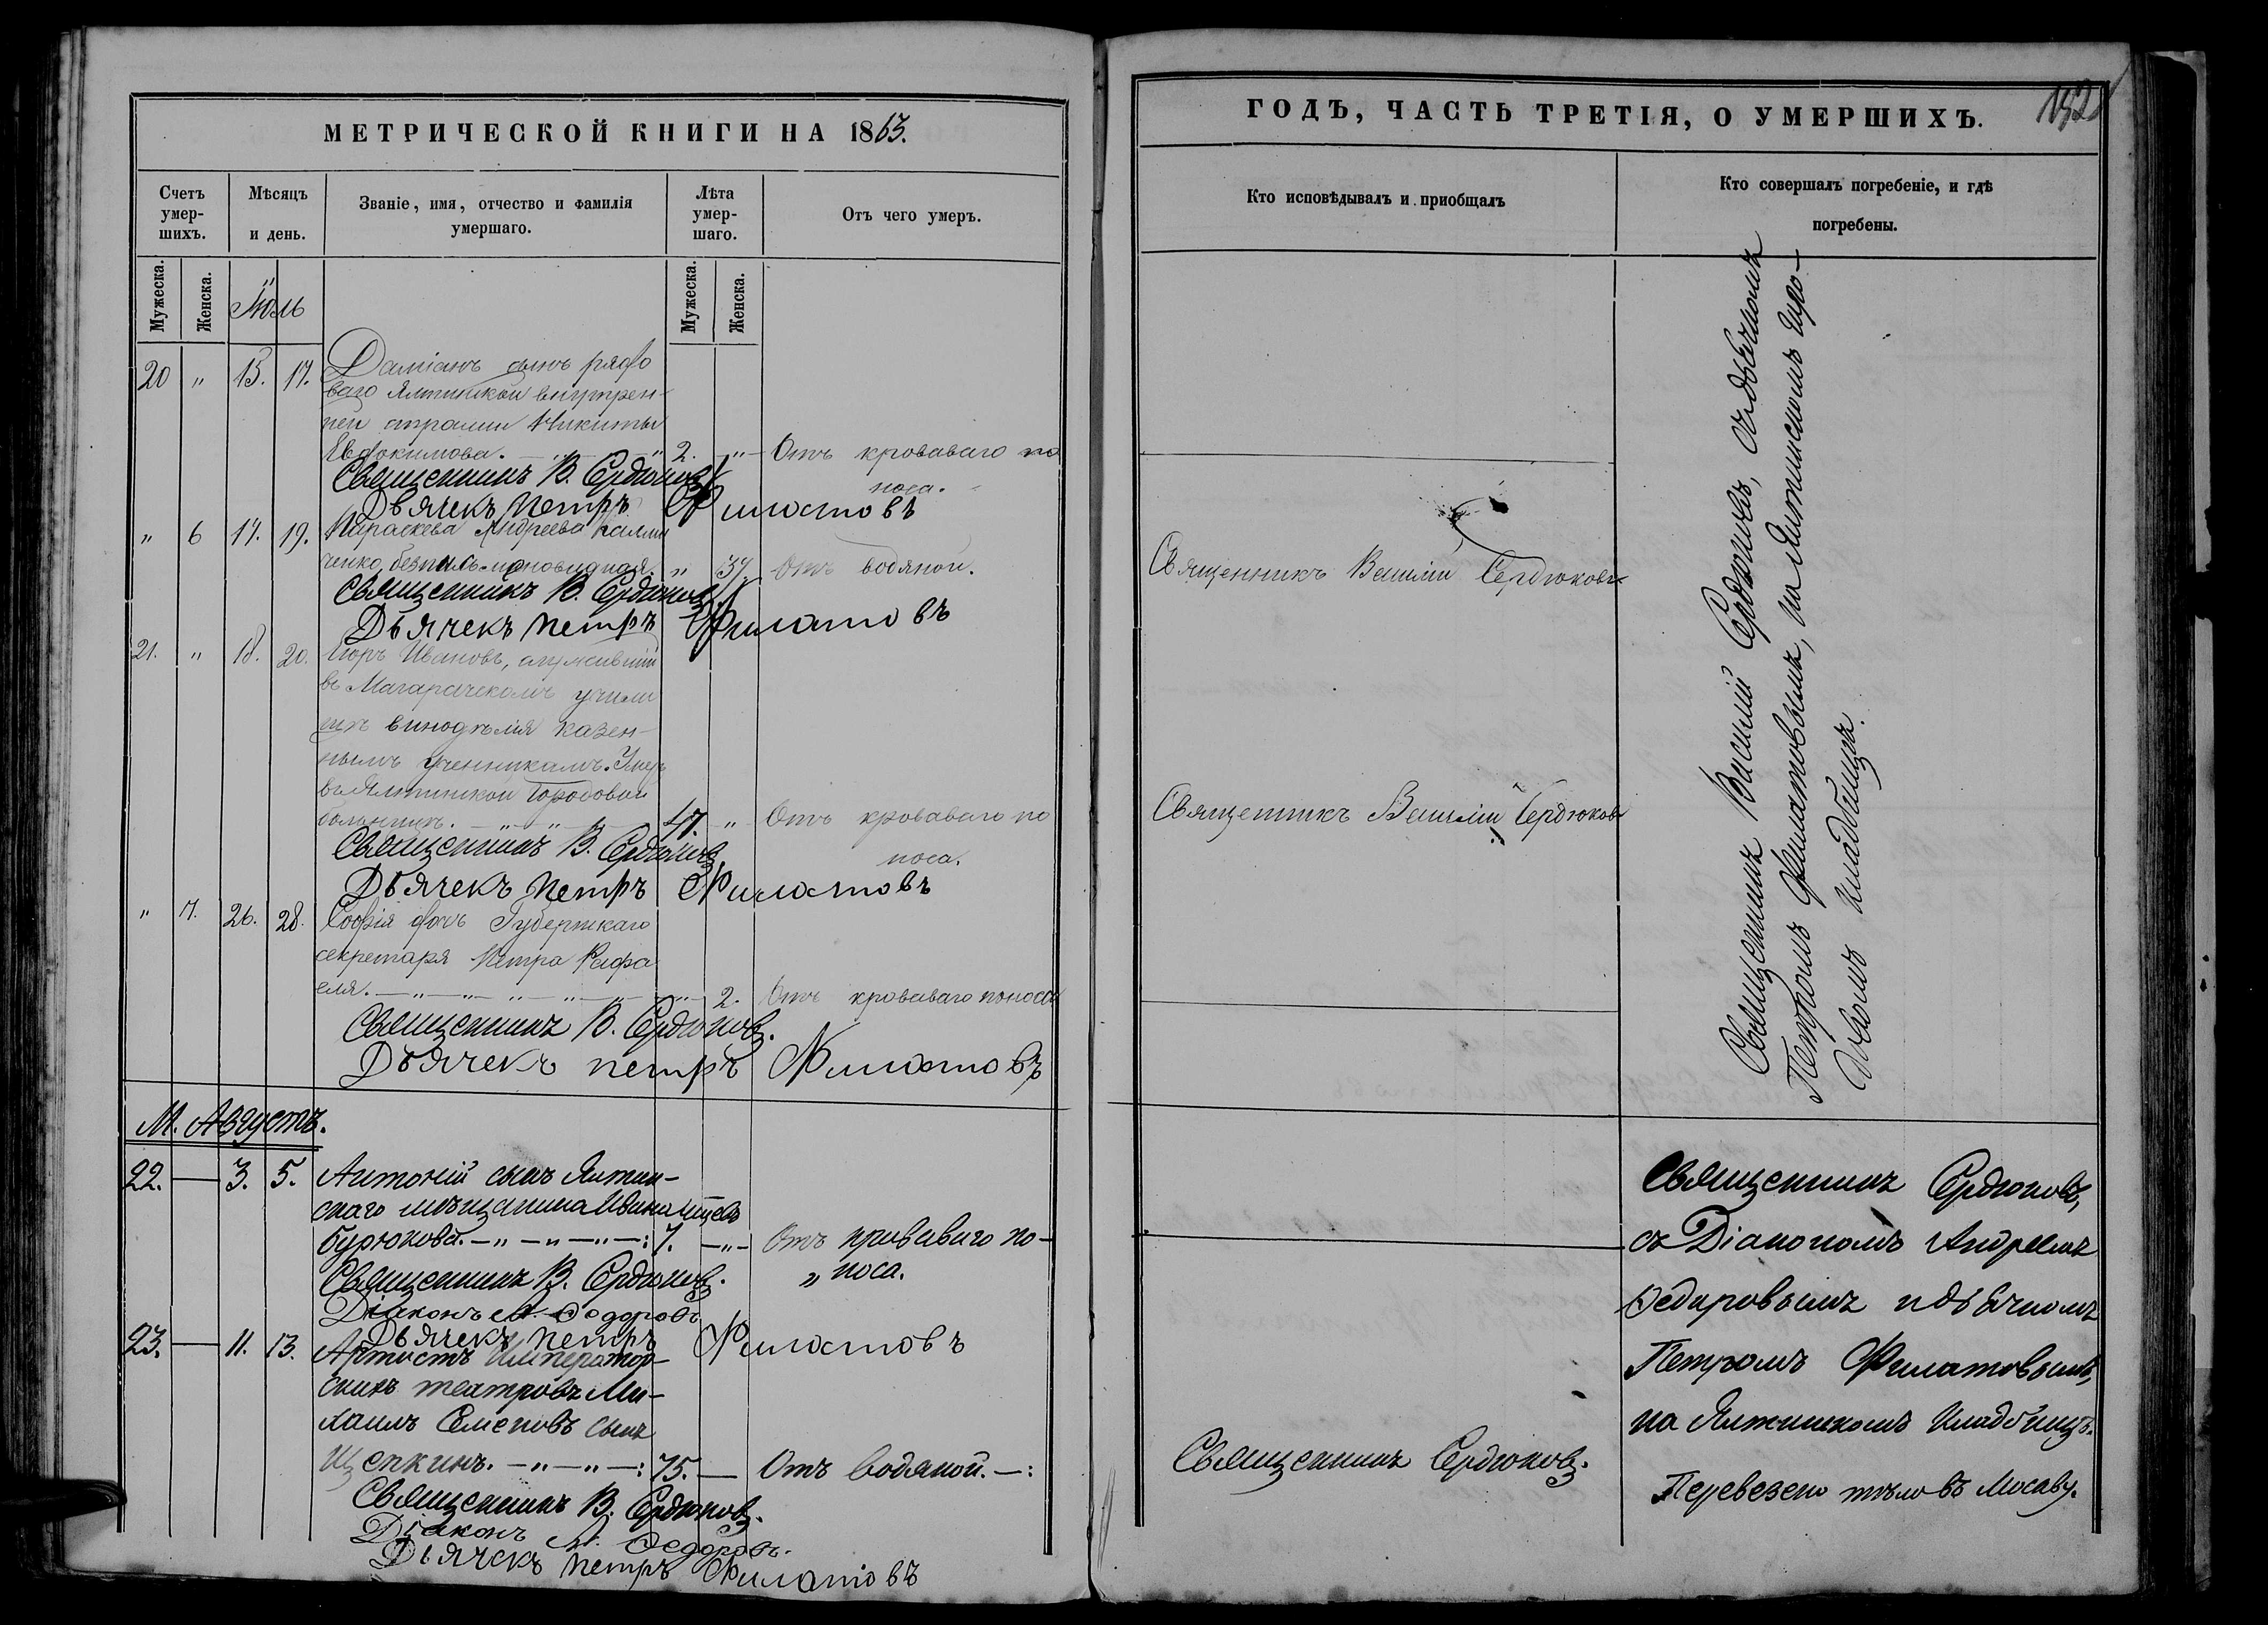 МЕТРИЧЕСКОЙ КНИГИ НА 1863.
Счетъ умер-шихъ.
Мѣсяцъ и день.
Званіе, имя, отчество и фамилія умершаго.
Лѣта умер-шаго.
Отъ чего умеръ.
Мужеска.
Женска.
Іюль
Мужеска.
Женска.
20 " 15. 17. Даміанъ сынъ рядо
ваго Ялтинской внутрен-
ней стражи Никиты
Евдокимова. 2. " Отъ кроваваго по
носа.
Священникъ В. Сердюковъ
Дьячекъ Петръ Филатовъ
" 6 17. 19. Параскева Андреева
" 37. Отъ водяной.
Священникъ В. Сердюковъ
Дьячекъ Петръ Филатовъ
21. " 18. 20. Егоръ Ивановъ, служившій
въ Магарачскомъ учили
щѣ винодѣлія казен-
нымъ ученикамъ. Умеръ
въ Ялтинской Городовой
больницѣ. 47. " Отъ кроваваго по
носа.
Священникъ В. Сердюковъ
Дьячекъ Петръ Филатовъ
" 7. 26. 28. Софія дочь Губернскаго
секретаря Петра Рафа
еля. " 2. Отъ кроваваго поноса
Священникъ В. Сердюковъ.
Дьячекъ Петръ Филатовъ
М. Августъ.
22. — 3. 5. Антоній сынъ Ялтин-
скаго мѣщанина Ивана
Бурюкова. 7. " Отъ кроваваго по-
носа.
Священникъ В. Сердюковъ.
Діаконъ А. Федоровъ
Дьячекъ Петръ Филатовъ
23. — 11. 13. Артистъ Император-
скихъ театровъ Ми-
хаилъ Семеновъ сынъ
Щепкинъ. 75. — Отъ водяной.
Священникъ В. Сердюковъ.
Діаконъ А. Федоровъ.
Дьячекъ Петръ Филатовъ
ГОДЪ, ЧАСТЬ ТРЕТІЯ, О УМЕРШИХЪ.
Кто исповѣдывалъ и пріобщалъ
Кто совершалъ погребеніе, и гдѣ
погребены.
Священникъ Василій Сердюковъ
Священникъ Василій Сердюковъ
Священникъ Василій Сердюковъ, съ дьячкомъ
Петромъ Филатовымъ, на Ялтинскомъ
кладбищѣ.
Священникъ Сердюковъ,
съ Діакономъ Андреемъ
Федоровымъ и дьячкомъ
Петромъ Филатовымъ,
на Ялтинскомъ кладбищѣ.
Священникъ Сердюковъ.
Перевезено тѣло въ Москву.